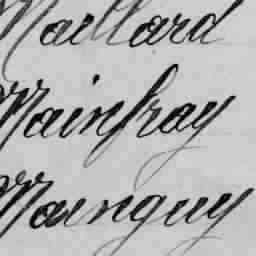 Maillard
Mainfray
Mainguy